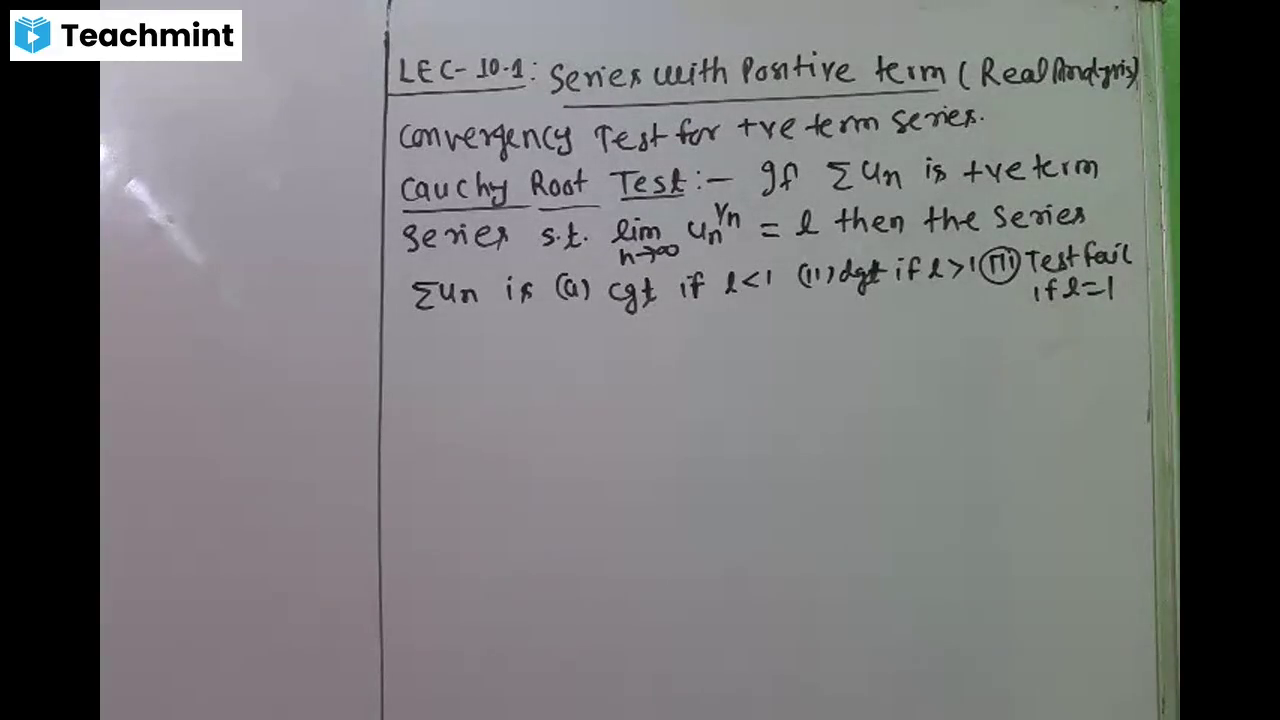 Teachmint
LEC-10.1: Series with Positive term (Real Analysis)
Convergency Test for +ve term series.
Cauchy Root Test:- If Σun is +ve term
series s.t. lim n→∞ un^1/n = l then the series
Σun is (a) cgt if l<1 (11) dgt if l>1 (111) Test fail
if l=1